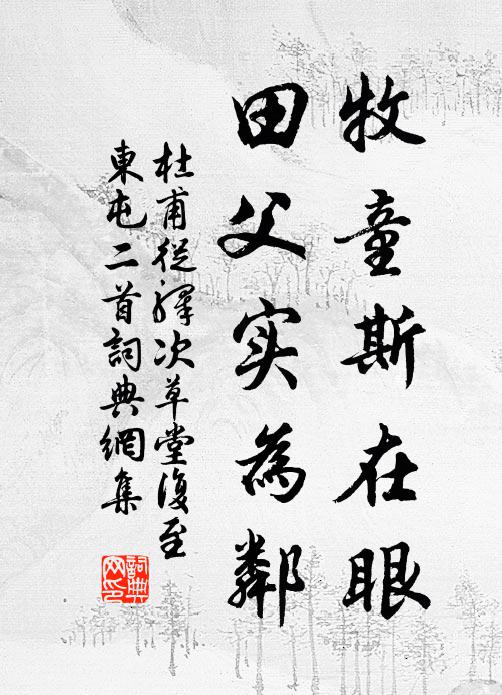 牧童斯在眼
田父实為鄰
杜甫從驛次草堂復至
東屯二首詞典網集
詞典网印